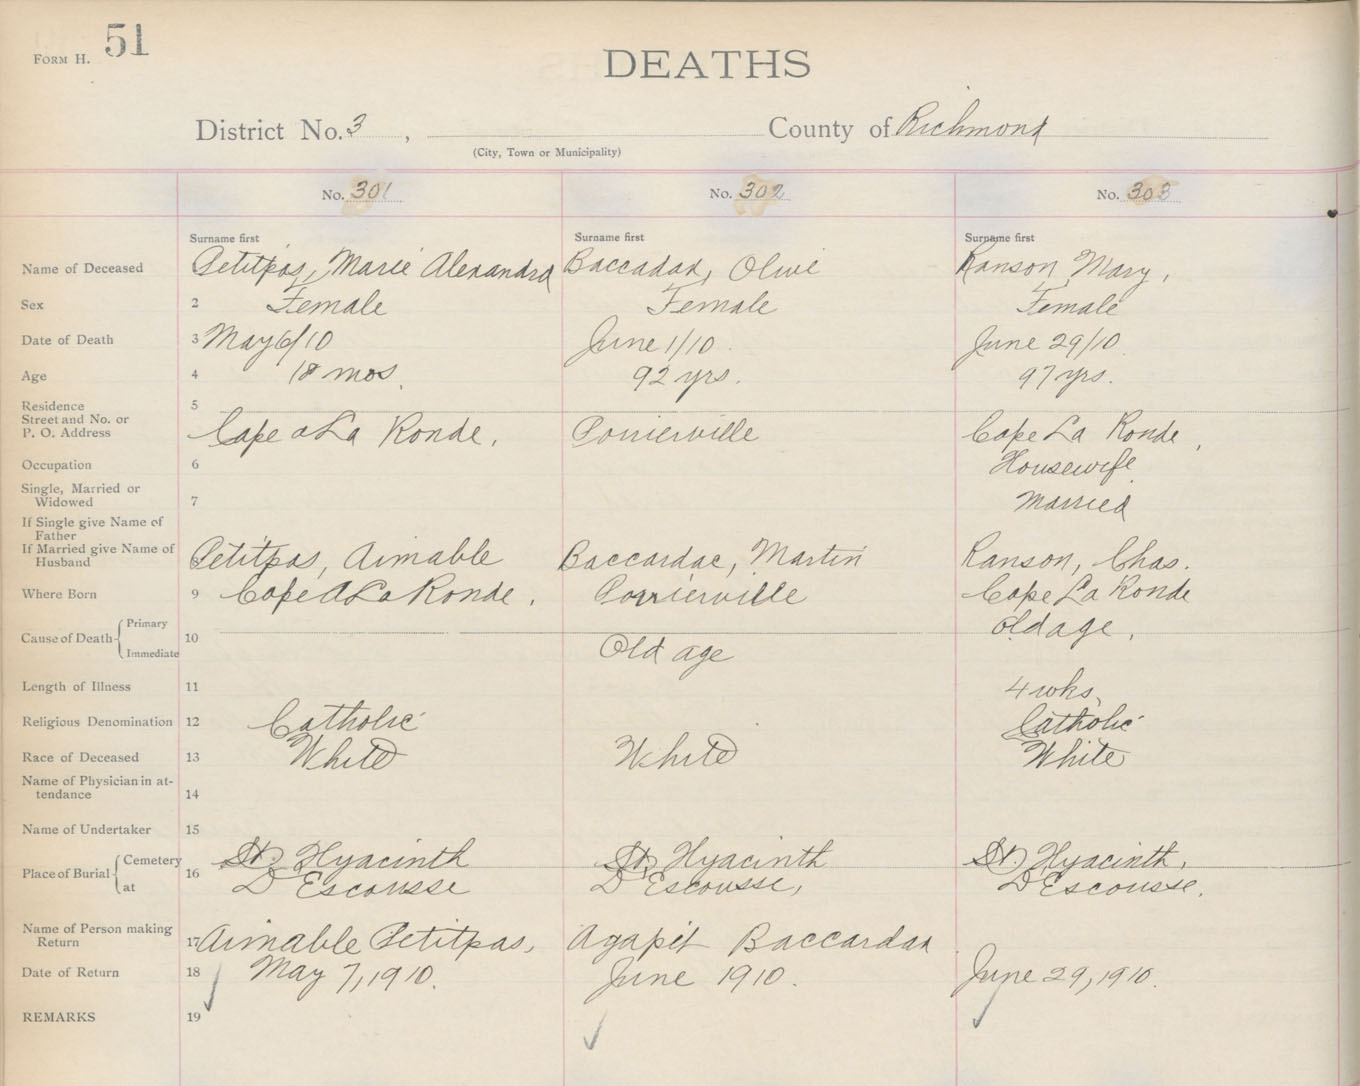 FORM H. 51
DEATHS
District No. 3 , County of Richmond
(City, Town or Municipality)
No. 301 No. 302 No. 303
Surname first Surname first Surname first
Name of Deceased Petitpas, Marie Alexandra Baccadax, Olive Ranson, Mary,
Sex 2 Female Female Female
Date of Death 3 May 6/10 June 1/10. June 29/10.
Age 4 18 mos. 92 yrs. 97 yrs.
Residence 5
Street and No. or
P. O. Address Cape aLa Ronde, Poirierville Cape La Ronde,
Occupation 6 Housewife
Single, Married or
Widowed 7 Married
If Single give Name of
Father
If Married give Name of
Husband 8 Petitpas, Aimable Baccardac, Martin Ranson, Chas.
Where Born 9 Cape A La Ronde, Poirierville Cape La Ronde
Primary
Cause of Death 10 Old age Old age,
Immediate
Length of Illness 11 4 wks,
Religious Denomination 12 Catholic Catholic
Race of Deceased 13 White White White
Name of Physician in at-
tendance 14
Name of Undertaker 15
Cemetery St. Hyacinth St. Hyacinth St. Hyacinth,
Place of Burial 16
at D'Escousse D'Escousse, D'Escousse.
Name of Person making
Return 17 Aimable Petitpas, Agapit Baccardax
Date of Return 18 May 7, 1910. June 1910. June 29, 1910.
REMARKS 19